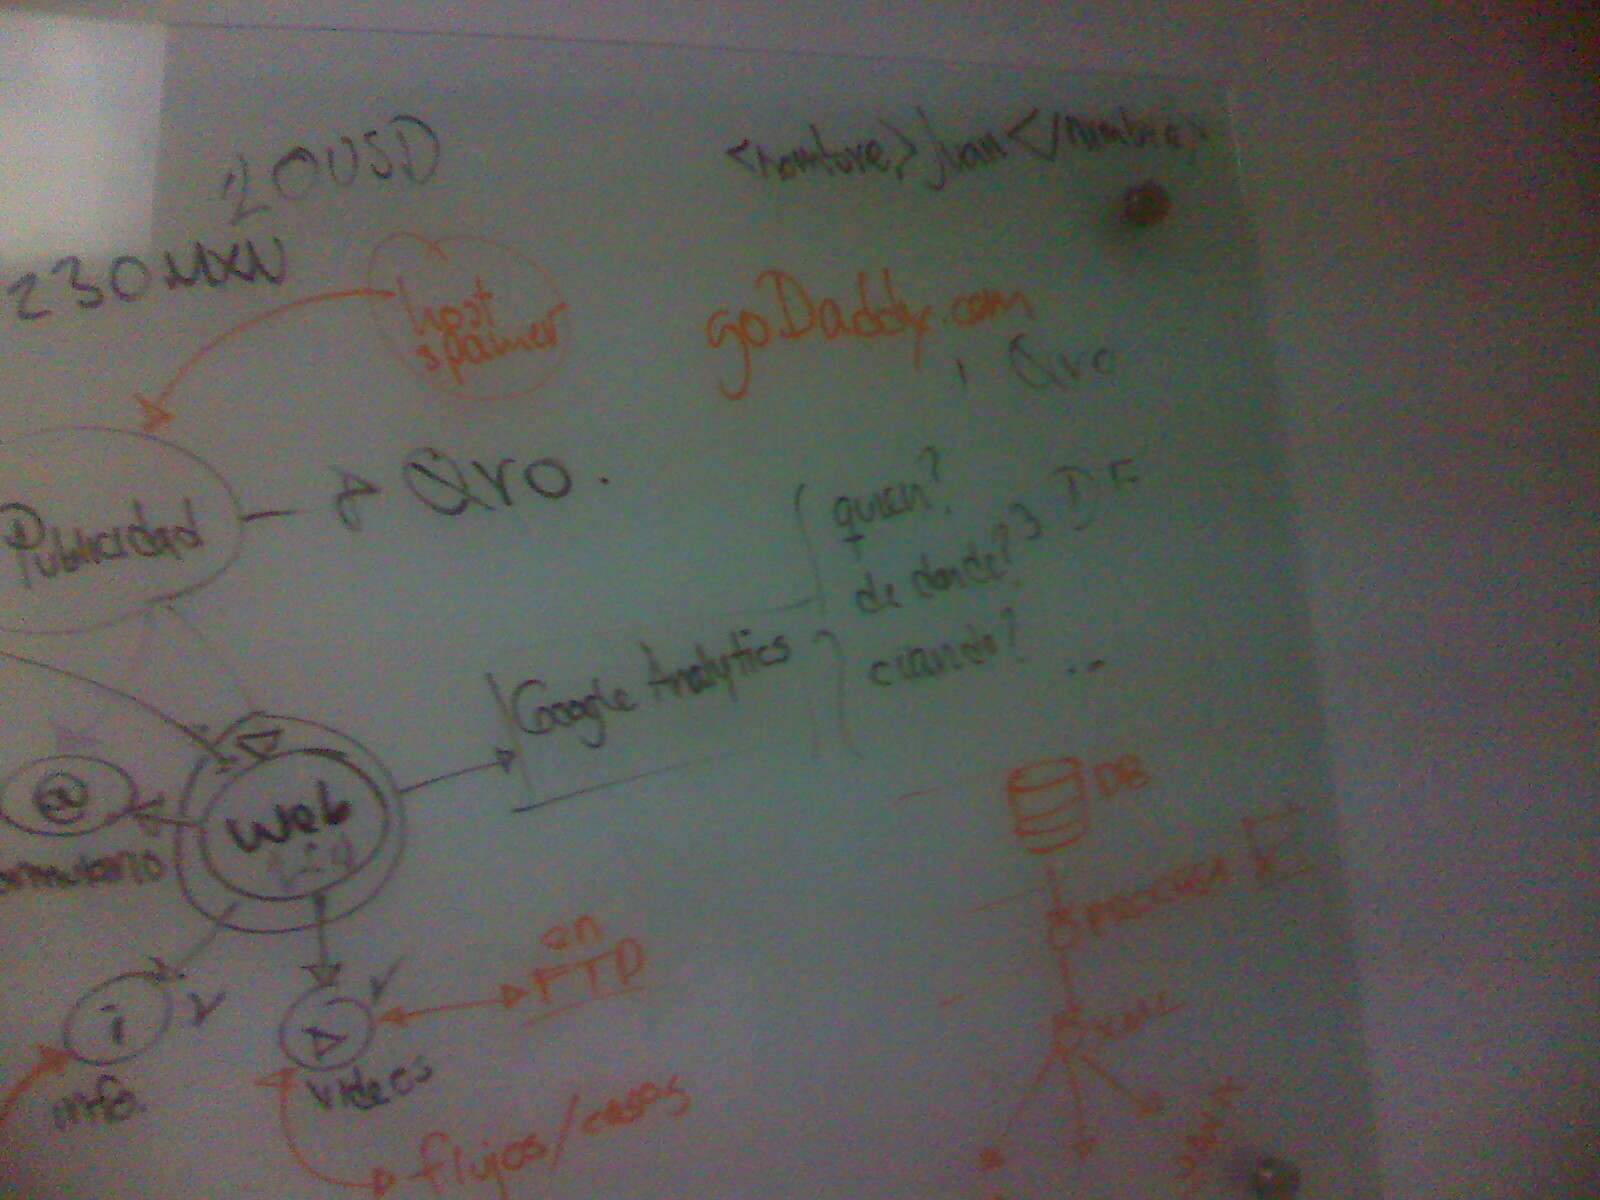 20USD
<nombre>Juan</nombre>
230MXN
host
spamer
goDaddy.com
Qro
Publicidad
Qro.
quien?
de donde?
3 DF
cuando?
...
Google Analytics
@
Web
DB
PROCESA
en
FTP
i
info.
videos
XML
flujos/casos